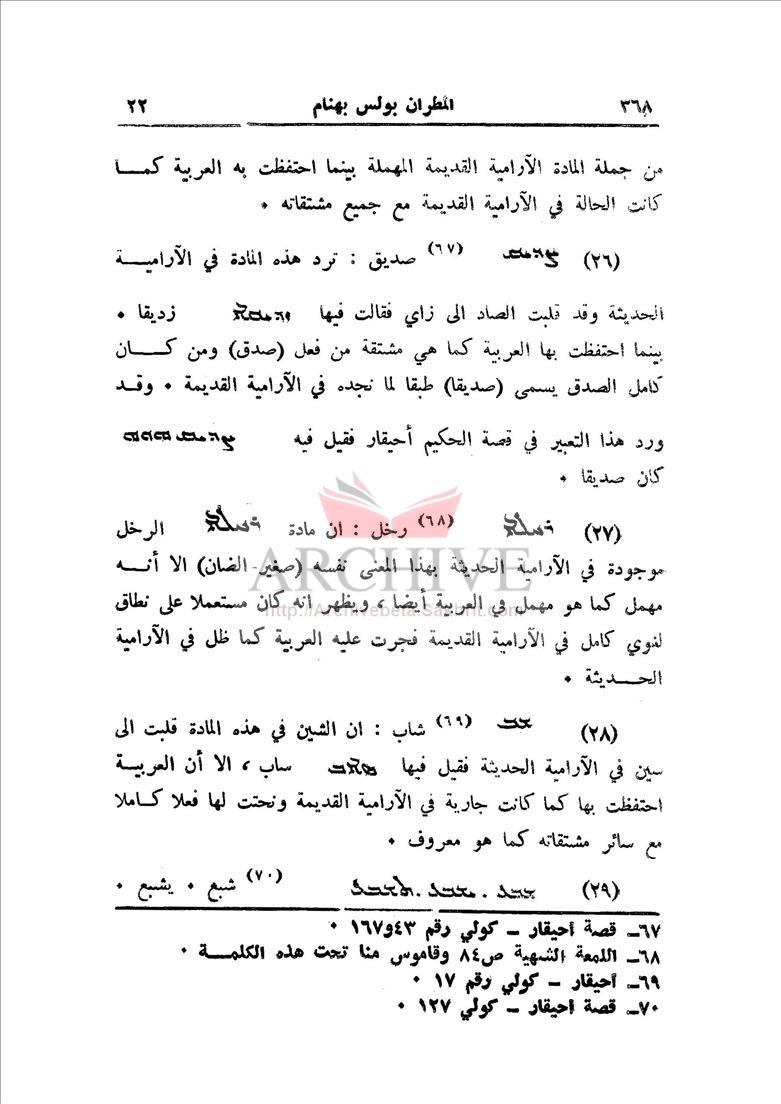 ٣٦٨ المطران بولس بهنام ٢٢
من جملة المادة الآرامية القديمة المهملة بينما احتفظت به العربية كمـــا
كانت الحالة في الآرامية القديمة مع جميع مشتقاته •
(٢٦) (٦٧) صديق : ترد هذه المادة في الآراميــة
الحديثة وقد قلبت الصاد الى زاي فقالت فيها زديقا •
بينما احتفظت بها العربية كما هي مشتقة من فعل (صدق) ومن كــــان
كامل الصدق يسمى (صديقا) طبقا لما نجده في الآرامية القديمة • وقــد
ورد هذا التعبير في قصة الحكيم أحيقار فقيل فيه
كان صديقا •
(٢٧) (٦٨) رخل : ان مادة الرخل
موجودة في الآرامية الحديثة بهذا المعنى نفسه (صغير الضان) الا أنــه
مهمل كما هو مهمل في العربية أيضا ، ويظهر انه كان مستعملا على نطاق
لغوي كامل في الآرامية القديمة فجرت عليه العربية كما ظل في الآرامية
الحــديثة •
(٢٨) (٦٩) شاب : ان الشين في هذه المادة قلبت الى
سين في الآرامية الحديثة فقيل فيها ساب ، الا أن العربيــة
احتفظت بها كما كانت جارية في الآرامية القديمة ونحتت لها فعلا كـاملا
مع سائر مشتقاته كما هو معروف •
(٢٩) (٧٠) شبع • يشبع •
٦٧ــ قصة احيقار – كولي رقم ٤٣و١٦٧ •
٦٨ــ اللمعة الشهية ص٨٤ وقاموس منا تحت هذه الكلمــة •
٦٩ــ أحيقار – كولي رقم ١٧ •
٧٠ــ قصة احيقار – كولي ١٢٧ •
ARCHIVE
http://Archivebeta.Sakhrit.com